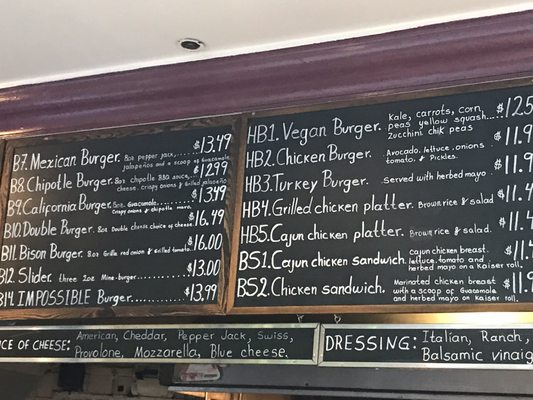 B7. Mexican Burger. 8oz pepper jack, jalapeños and a scoop of Guacamole. $13.49
B8. Chipotle Burger. 8oz chipotle BBQ sauce, cheese, crispy onions & grilled jalapeño $12.99
B9. California Burger. 8oz. Guacamole. Crispy onions & chipotle mayo. $13.49
B10. Double Burger. 8oz Double Cheese choice of cheese $16.49
B11. Bison Burger. 8oz Grille red onion & Grilled tomato. $16.00
B12. Slider. three 2oz Mine-burger. $13.00
B14 IMPOSSIBLE Burger $13.99
HB1. Vegan Burger. Kale, carrots, Corn, peas yellow squash... Zucchini chik peas $12.5
HB2. Chicken Burger. Avocado, lettuce, onions tomato, & Pickles. $11.9
HB3. Turkey Burger. Served with herbed mayo $11.9
HB4. Grilled chicken platter. Brown rice & salad $11.4
HB5. Cajun chicken platter. Brown rice & salad. $11.4
BS1. Cajun chicken sandwich. Cajun chicken breast lettuce, tomato and herbed mayo on a Kaiser roll. $11.4
BS2. Chicken sandwich. Marinated chicken breast with a scoop of Guacamole and herbed mayo on Kaiser roll. $11.9
CE OF CHEESE: American, Cheddar, Pepper Jack, Swiss,
Provolone, Mozzarella, Blue cheese.
DRESSING: Italian, Ranch,
Balsamic vinaig